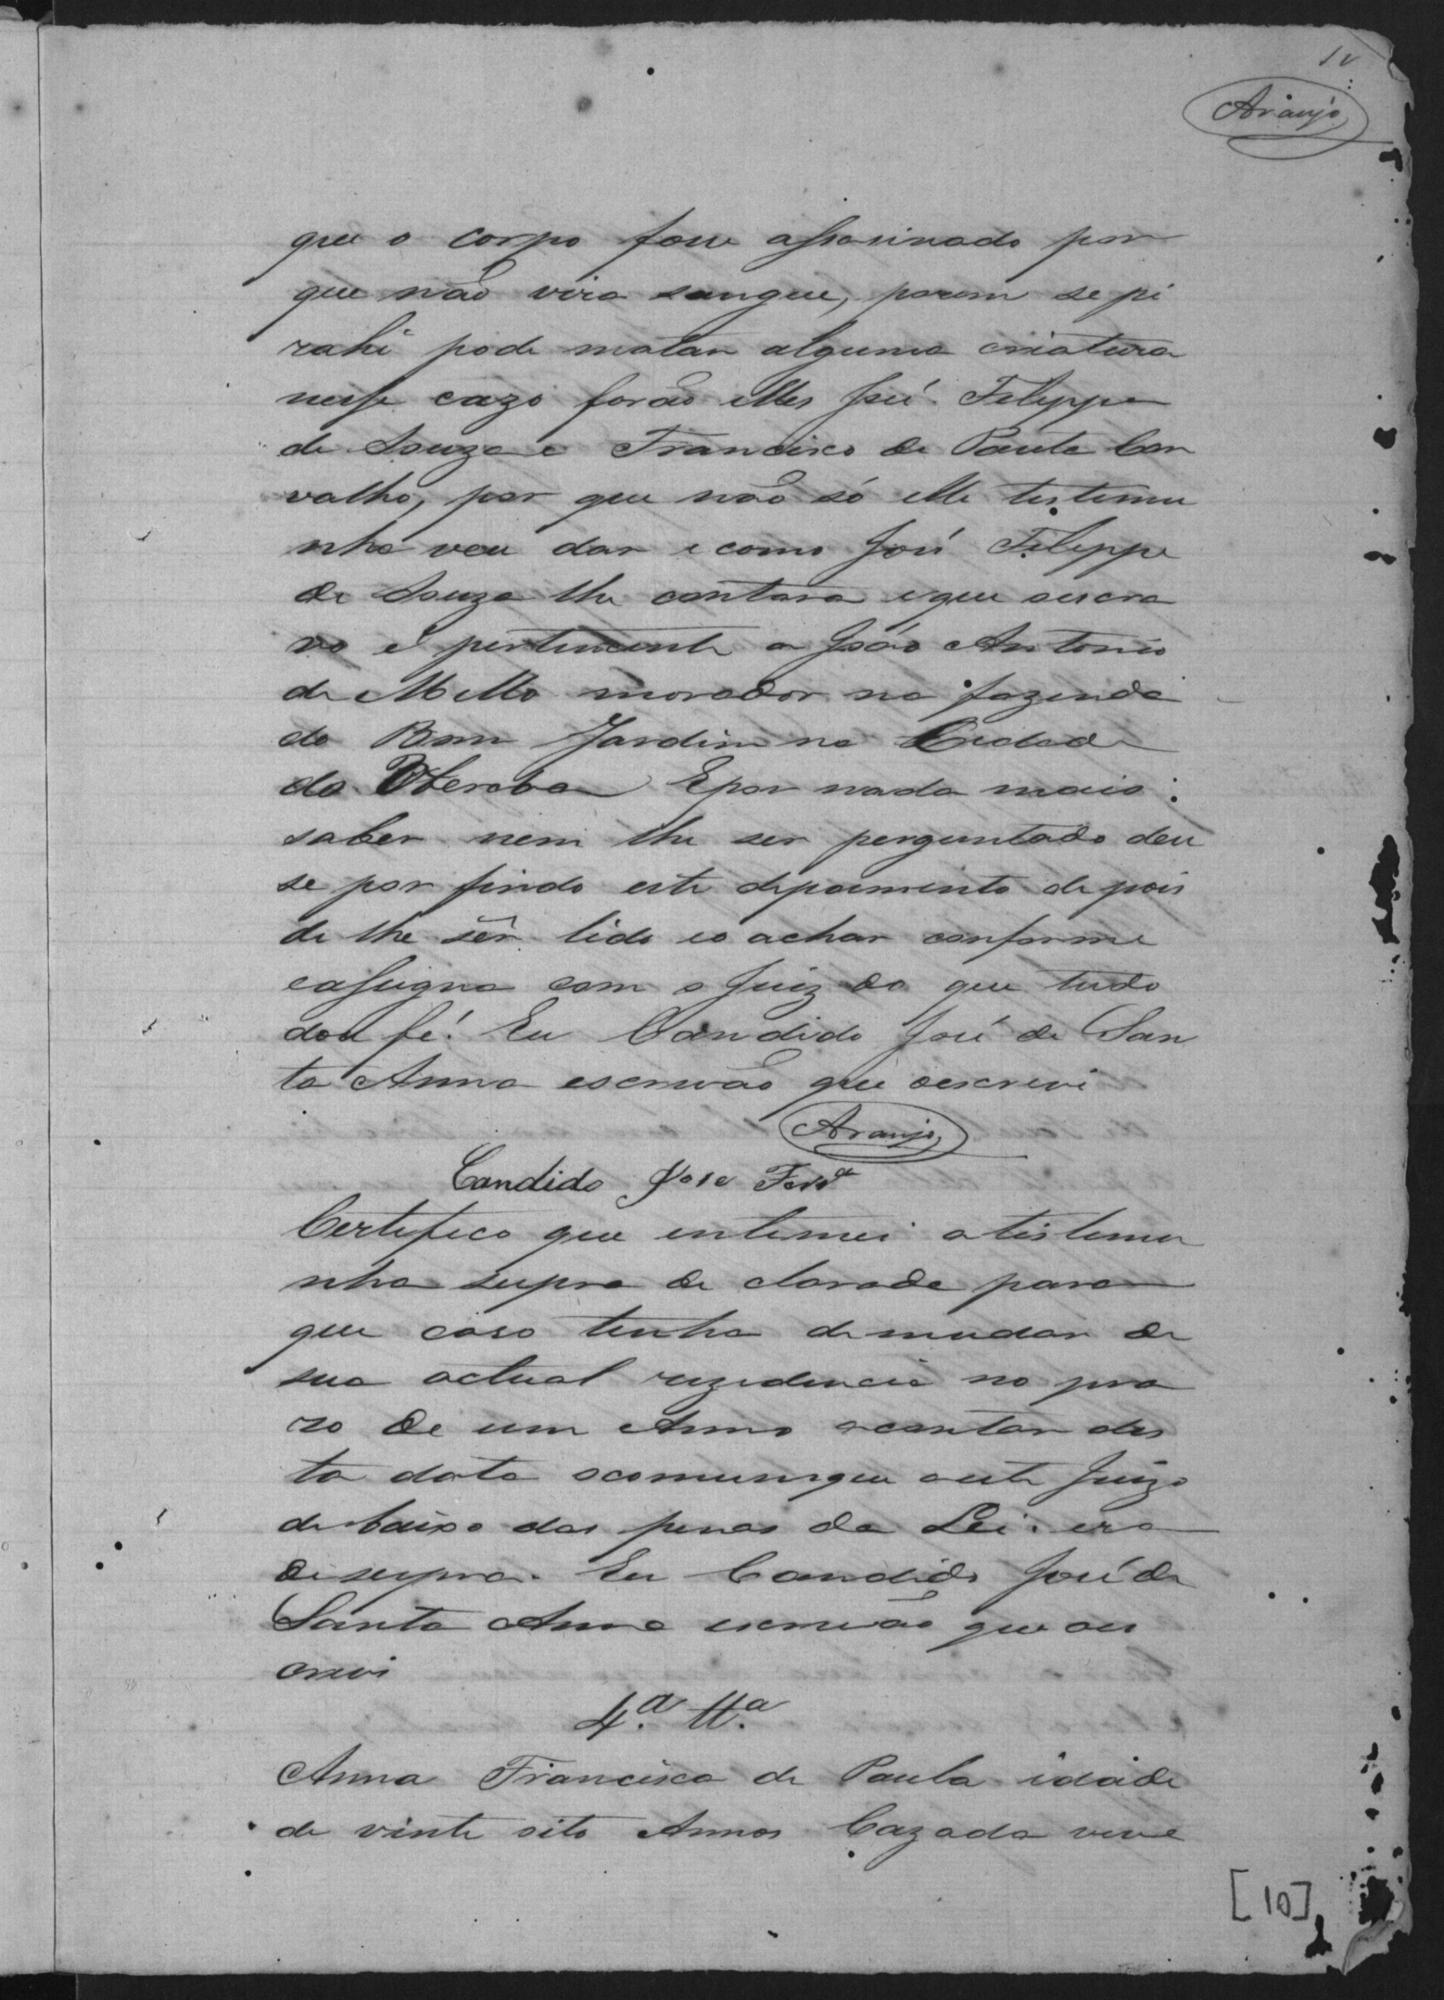 Araujo
que o corpo fosse assasinado por
que não vira sangue, porem se pi
rahi pode matar alguma criatura
nesse cazo forão elles José Felippe
de Souza e Francisco de Paula Car
valho, por que não só elle testemu
nha veu dar e como José Felippe
de Souza lhe contara e que oescra
vo é pertencente a João Antonio
de Mello morador na fazenda
do Bom Jardim na Cidade
da Uberaba E por nada mais
saber nem lhe ser perguntado deu
se por findo este depoimento depois
de lhe sêr lido eo achar conforme
eassigna com o Juiz do que tudo
dou fé. Eu Candido José de San
ta Anna escrivão que oescrevi
Araujo
Candido Jose
Certifico que intimei atestemu
nha supra de clarada para
que caso tenha demudar de
sua actual rezidencia no pra
zo de um Anno acontar des
ta data ocomunique aeste Juizo
debaixo das penas da Lei. era
desupra. Eu Candido José de
Santa Anna escrivão que oes
crevi
4.ª tt.ª
Anna Francisca de Paula idade
de vinte oito Annos Cazada vive
[10]